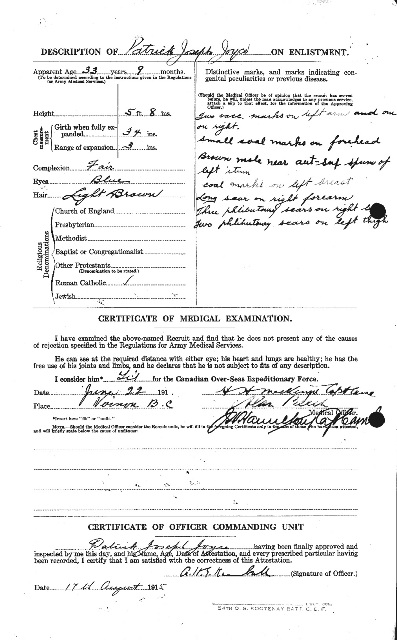 DESCRIPTION OF Patrick Joseph Joyce ON ENLISTMENT.
Apparent Age 33 years 9 months.
(To be determined according to the instructions given in the Regulations
for Army Medical Services.)
Height 5 ft. 8 ins.
Chest measurement
Girth when fully expanded 34 ins.
Range of expansion 3 ins.
Complexion Fair
Eyes Blue
Hair Light Brown
Religious Denominations
Church of England
Presbyterian
Methodist
Baptist or Congregationalist
Other Protestants
(Denomination to be stated.)
Roman Catholic /
Jewish
Distinctive marks, and marks indicating congenital peculiarities or previous disease.
(Should the Medical Officer be of opinion that the recruit has served
before, he will, unless the man acknowledges to any previous service,
attach a slip to that effect, for the information of the Approving
Officer.)
two vacc. marks on left arm and one
on right.
small coal marks on forehead
Brown mole near spine of
left
coal marks on left breast
Long scar on right forearm
Three scars on right
two scars on left thigh
CERTIFICATE OF MEDICAL EXAMINATION.
I have examined the above-named Recruit and find that he does not present any of the causes
of rejection specified in the Regulations for Army Medical Services.
He can see at the required distance with either eye; his heart and lungs are healthy; he has the
free use of his joints and limbs, and he declares that he is not subject to fits of any description.
I consider him* Fit for the Canadian Over-Seas Expeditionary Force.
Date June 22 191
Place Vernon B.C
Medical Officer.
*Insert here "fit" or "unfit."
NOTE.—Should the Medical Officer consider the Recruit unfit, he will fill in the foregoing Certificate only in the case of those who have been attested,
and will briefly state below the cause of unfitness:
CERTIFICATE OF OFFICER COMMANDING UNIT
Patrick Joseph Joyce having been finally approved and
inspected by me this day, and his Name, Age, Date of Attestation, and every prescribed particular having
been recorded, I certify that I am satisfied with the correctness of this Attestation.
(Signature of Officer.)
Date 17th August 1915
54TH O. S. KOOTENAY BATT. C. E. F.